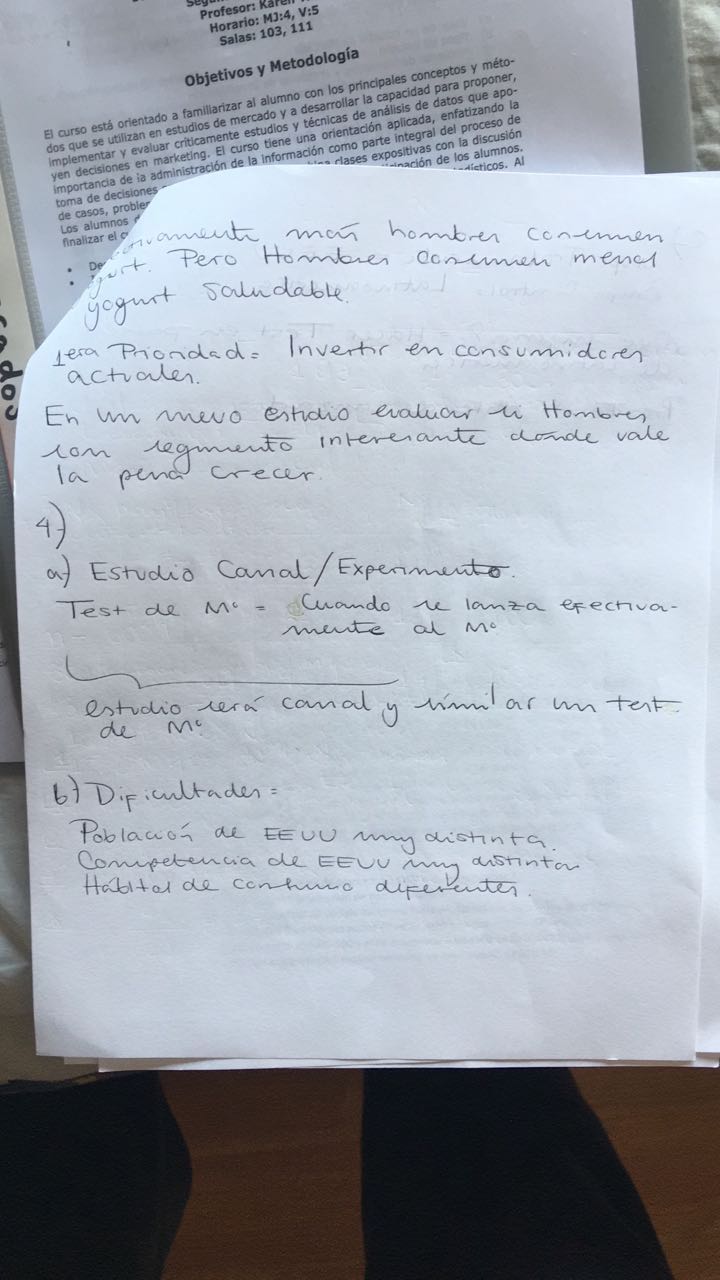 Profesor: Karen
Horario: MJ:4, V:5
Salas: 103, 111
Objetivos y Metodología
El curso está orientado a familiarizar al alumno con los principales conceptos y méto-
dos que se utilizan en estudios de mercado y a desarrollar la capacidad para proponer,
implementar y evaluar críticamente estudios y técnicas de análisis de datos que apo-
yen decisiones en marketing. El curso tiene una orientación aplicada, enfatizando la
importancia de la administración de la información como parte integral del proceso de
toma de decisiones clases expositivas con la discusión
de casos, de los alumnos.
Los alumnos Al
finalizar el
más hombres consumen
Pero Hombres consumen menos
yogurt saludable.
1era Prioridad = Invertir en consumidores
actuales.
En un nuevo estudio evaluar si Hombres
son segmento interesante donde vale
la pena crecer.
4)
a) Estudio Canal/Experimento.
Test de Mº = Cuando se lanza efectiva-
mente al Mº
estudio será canal y similar a un test
de Mº
b) Dificultades =
Población de EEUU muy distinta.
Competencia de EEUU muy distinta
Hábitos de consumo diferentes.